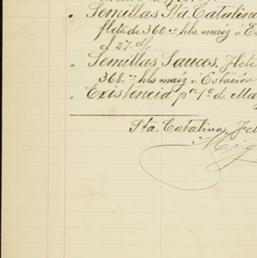 Semillas Sta Catalina
flete de 360.00 hls. maiz á E
el 27. d/
Semillas Sauces, flete
368.00 hls maiz á Estación
Existencia pa 1o de Ma
Sta. Catalina, Fe
Mig